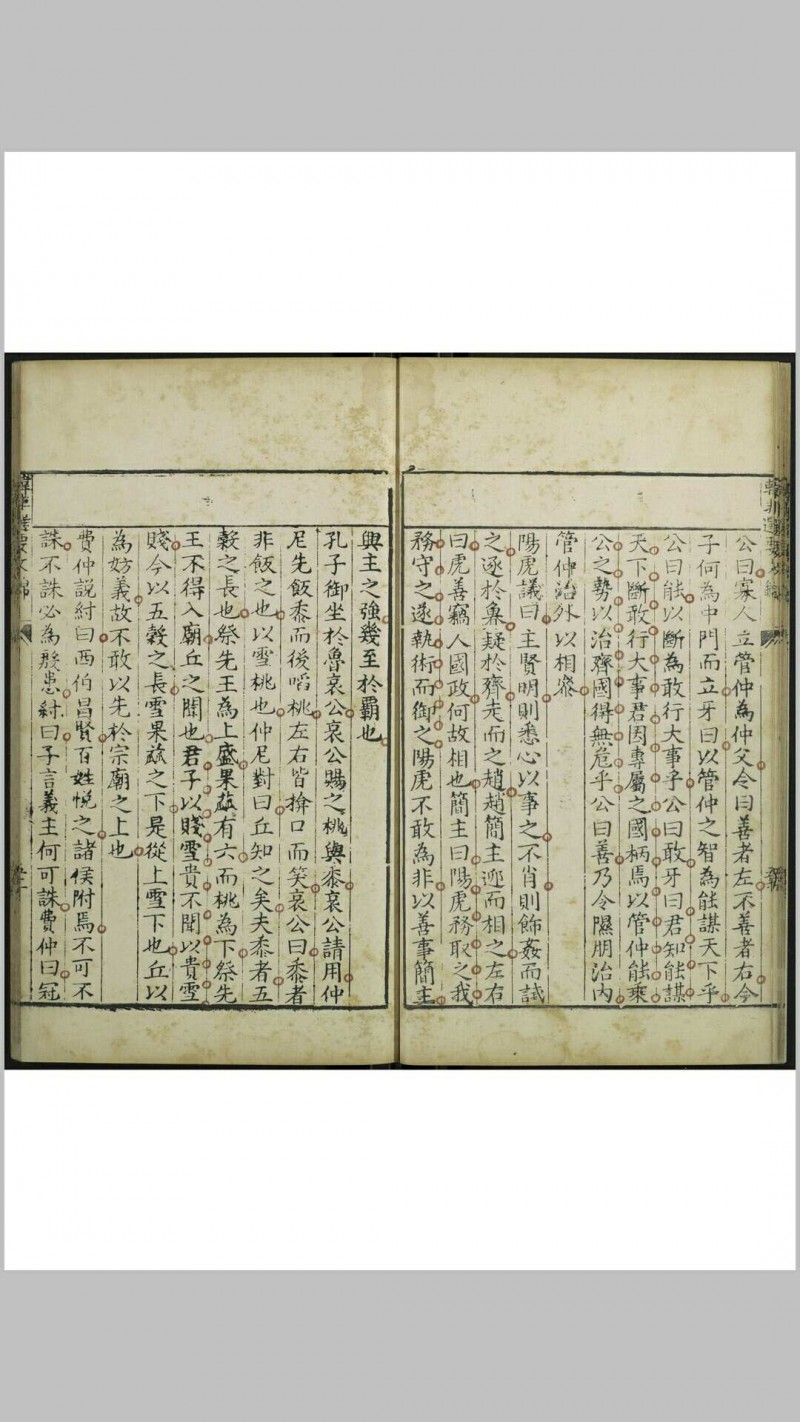 公曰寡人立管仲為仲父令曰善者左不善者右今
子何為中門而立牙曰以管仲之智為能謀天下乎
公曰能以斷為敢行大事乎公曰敢牙曰君知能謀
天下斷敢行大事君因專屬之國柄焉以管仲能乘
公之勢以治齊國得無危乎公曰善乃令隰朋治內
管仲治外以相參
陽虎議曰主賢明則悉心以事之不肖則飾姦而試
之逐於魯疑於齊走而之趙趙簡主迎而相之左右
曰虎善竊人國政何故相也簡主曰陽虎務取之我
務守之遂執術而御之陽虎不敢為非以善事簡主
興主之強幾至於霸也
孔子御坐於魯哀公哀公賜之桃與黍哀公請用仲
尼先飯黍而後啗桃左右皆揜口而笑哀公曰黍者
非飯之也以雪桃也仲尼對曰丘知之矣夫黍者五
穀之長也祭先王為上盛果蓏有六而桃為下祭先
王不得入廟丘之聞也君子以賤雪貴不聞以貴雪
賤今以五穀之長雪果蓏之下是從上雪下也丘以
為妨義故不敢以先於宗廟之上也
費仲說紂曰西伯昌賢百姓悅之諸侯附焉不可不
誅不誅必為殷患紂曰子言義主何可誅費仲曰冠